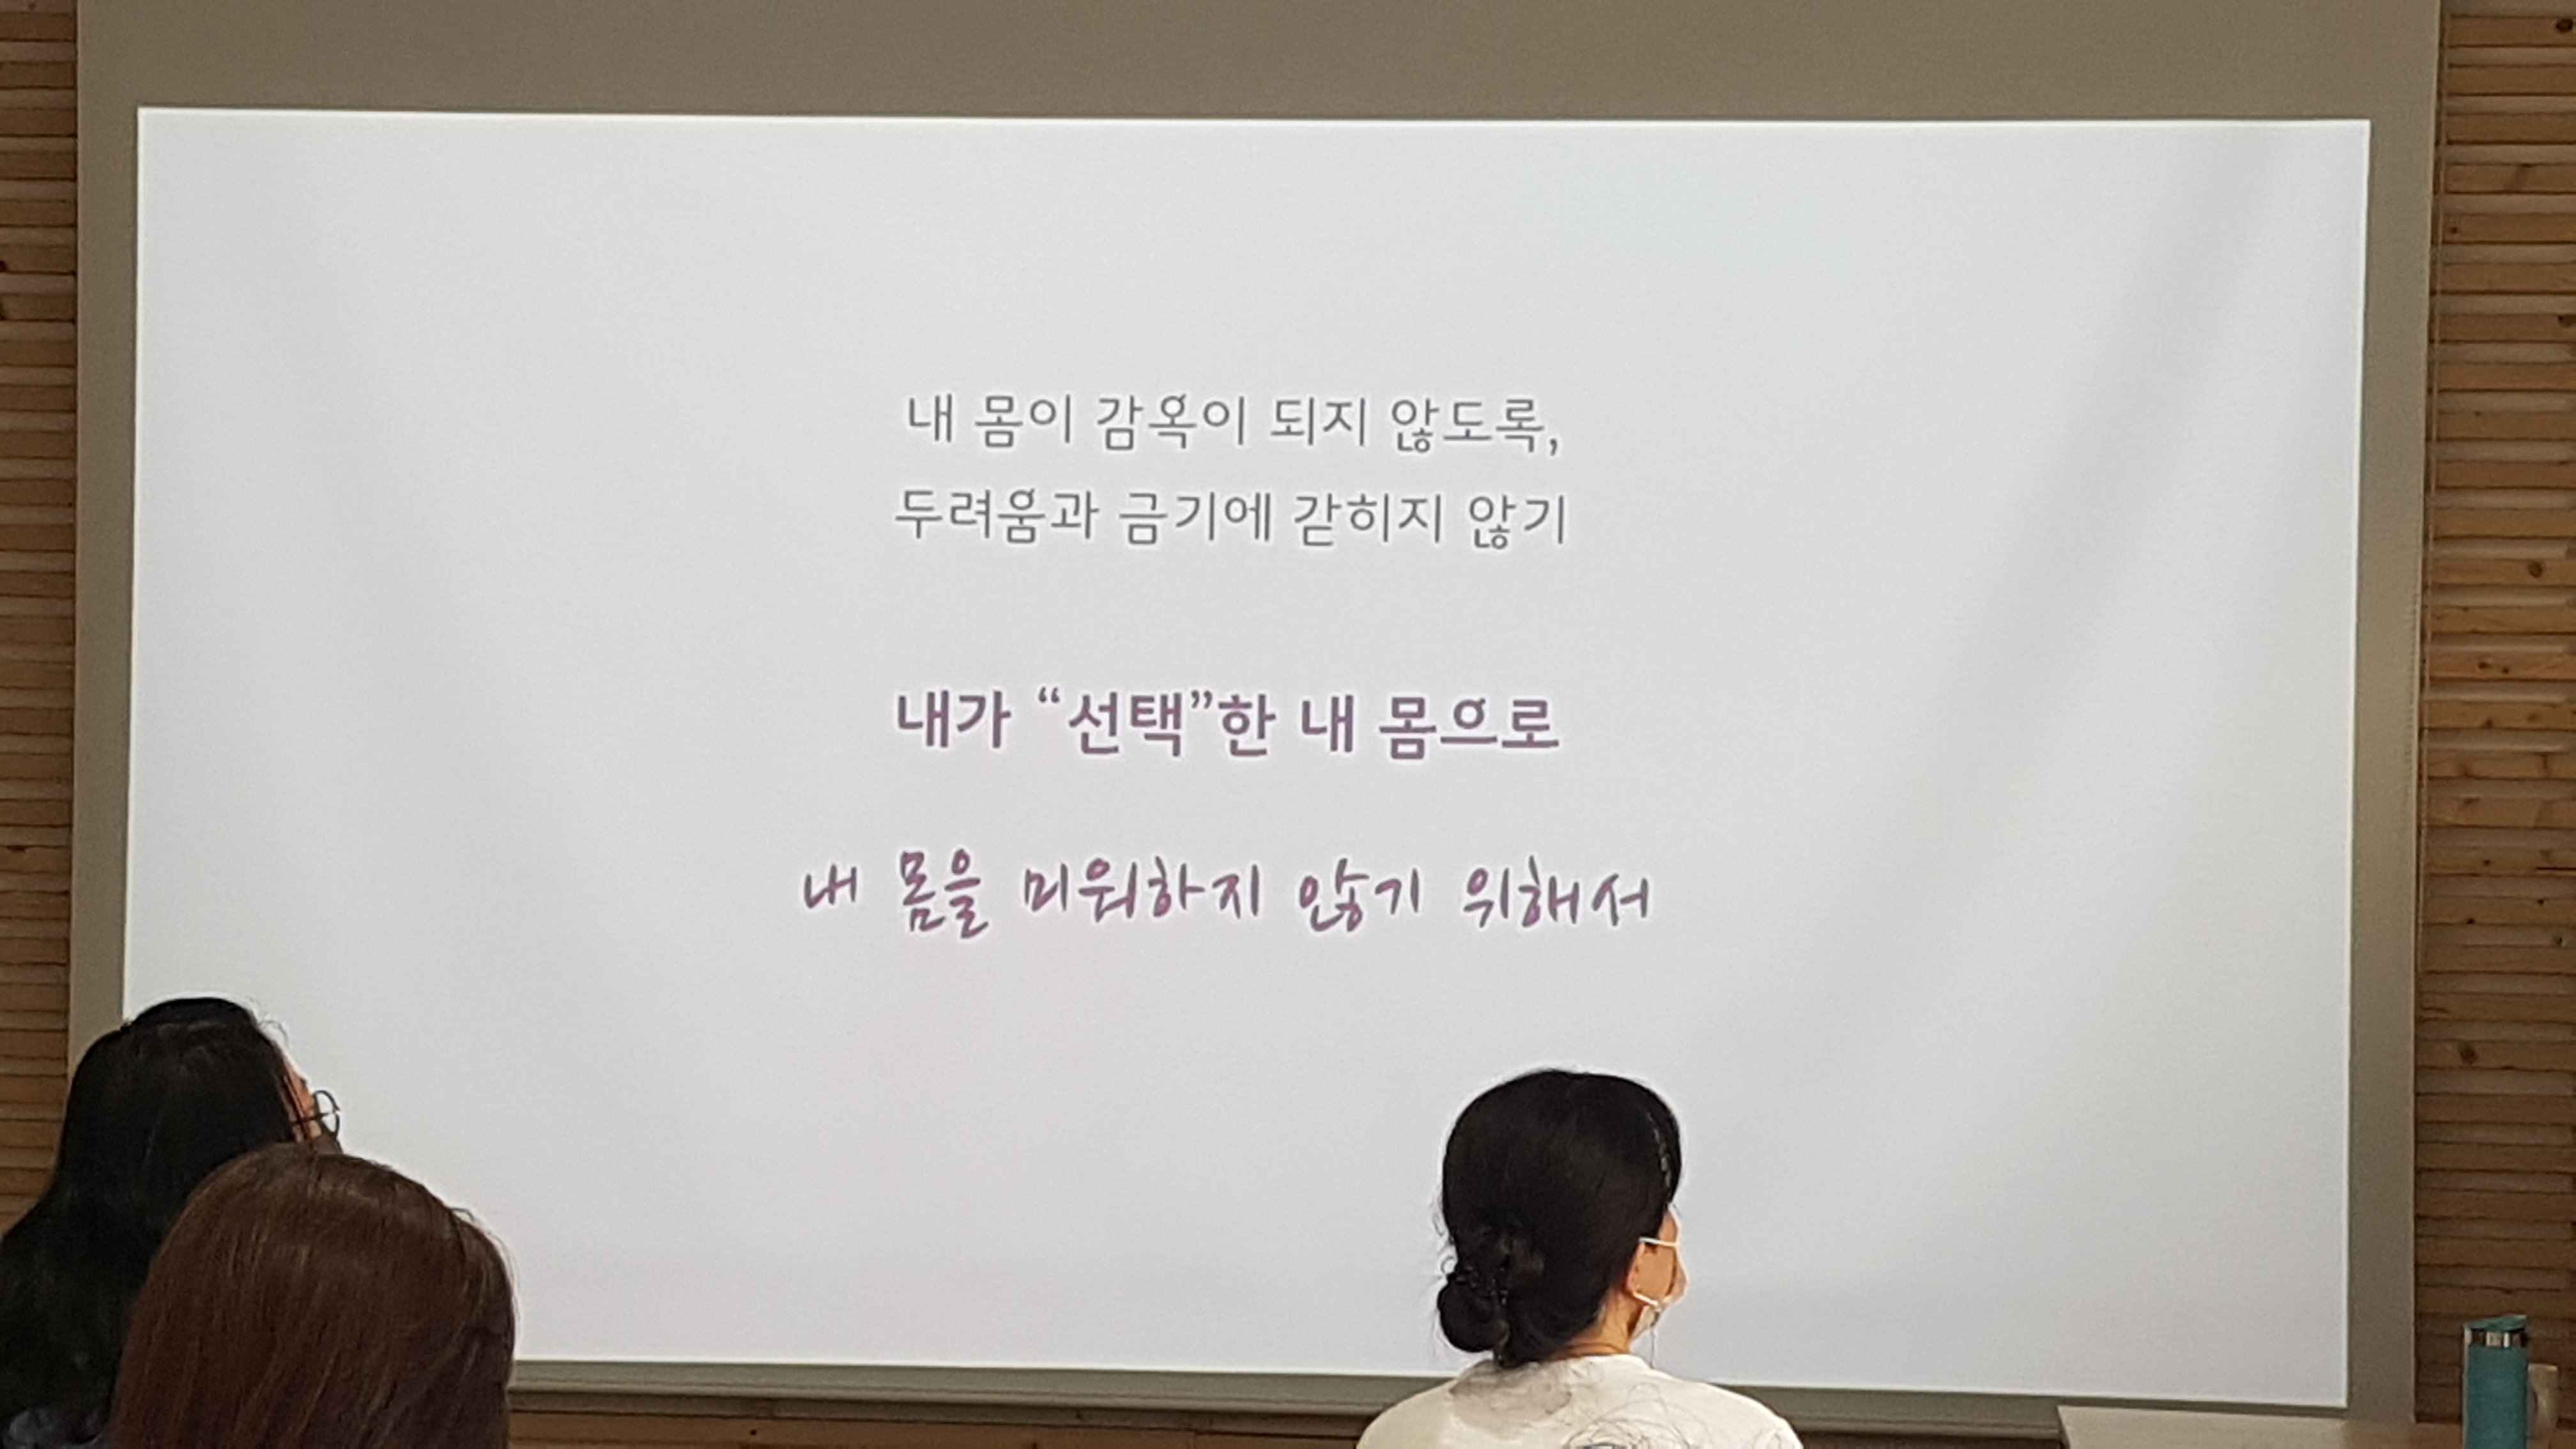 내 몸이 감옥이 되지 않도록,
두려움과 금기에 갇히지 않기
내가 “선택”한 내 몸으로
내 몸을 미워하지 않기 위해서